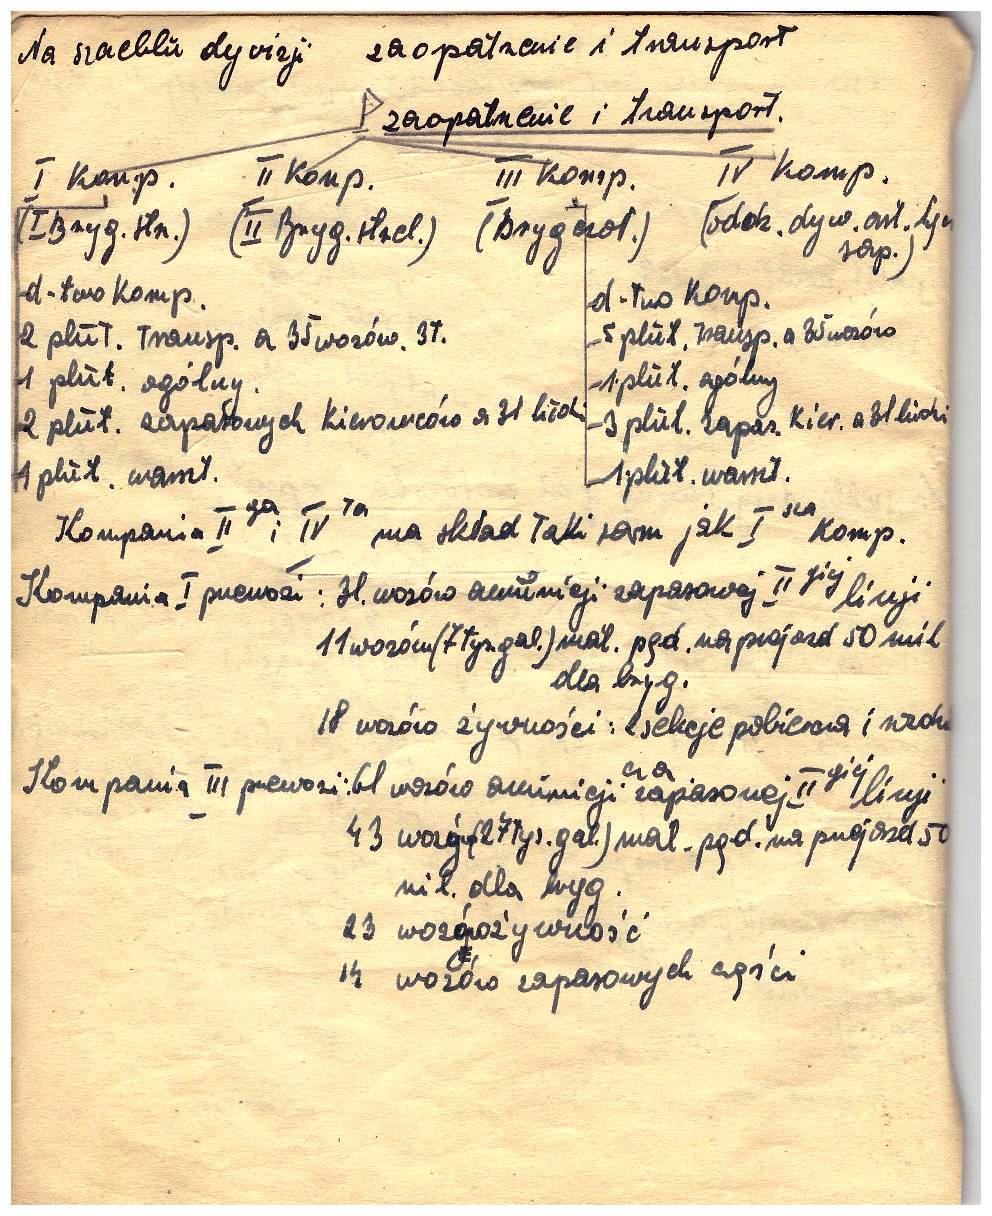 Na szczeblu dywizji zaopatrzenie i transport
zaopatrzenie i transport.
I Komp. II Komp. III Komp. IV Komp.
(I Bryg. strz.) (II Bryg. strzel.) (Bryg czoł.) (oddz. dyw. art.
sap.)
d-two Komp. d-two Komp.
2 plut. transp. a 35 wozów. 3t. 5 plut. transp. a 35 wozów
1 plut. ogólny. 1 plut. ogólny
2 plut. zapasowych kierowców a 31 ludzi 3 plut. zapas. kier. a 31 ludzi
1 plut. warszt. 1 plut. warszt.
Kompania II ga i IV ta ma skład taki sam jak I sza Komp.
Kompania I przewozi: 31. wozów amunicji zapasowej II giej linji
11 wozów (7 tys. gal.) mat. pęd. na przejazd 50 mil
dla bryg.
18 wozów żywności: 2 sekcje pobierana i
Kompania III przewozi: 61 wozów amunicji zapasowej II giej linji
43 wozy (27 tys. gal.) mat. pęd. na przejazd 50
mil. dla bryg.
23 wozy żywność
14 wozów zapasowych części